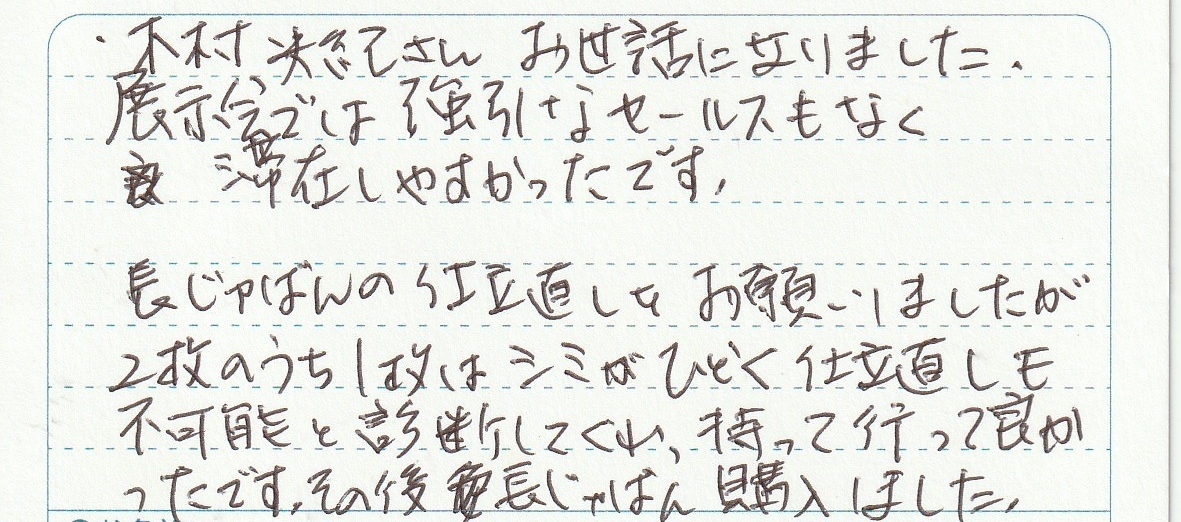 ・木村 さん お世話になりました.
展示会では 強引なセールスもなく
滞在しやすかったです.
長じゃばんの仕立直しを お願いしましたが
2枚のうち1枚は シミがひどく 仕立直しも
不可能と診断してくれ、持って行って良か
ったです.その後長じゃばん 購入しました.